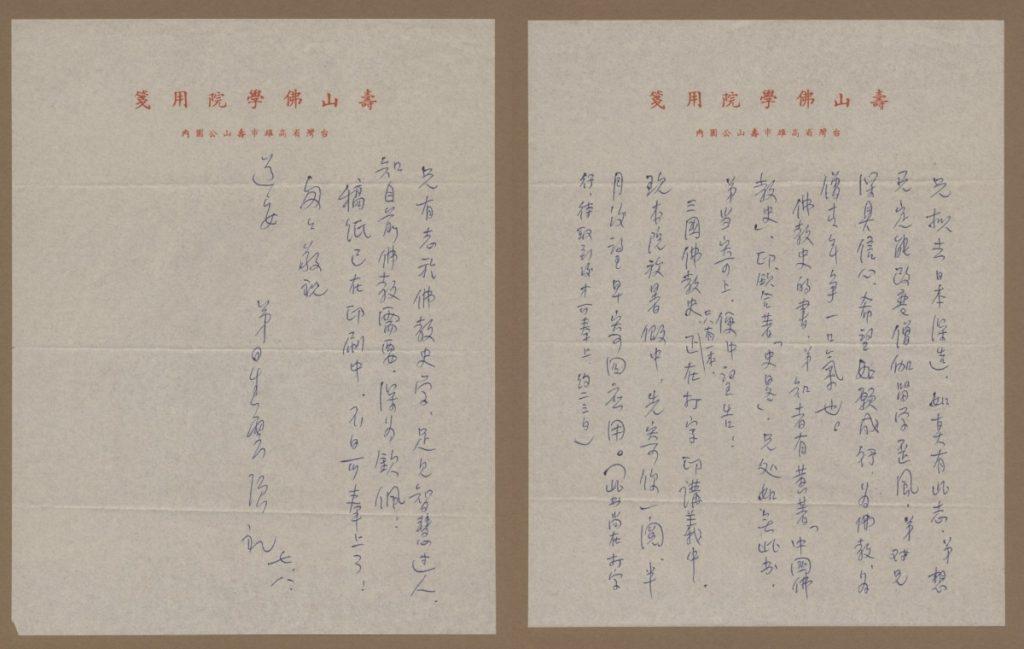 壽山佛學院用箋
台灣省高雄市壽山公園內
兄擬去日本深造,如真有此志,弟想
兄定能改變僧伽留学歪風,弟对兄
深具信心,希望如願成行,为佛教、为
僧青年爭一口氣也。
佛教史的書,弟知者有黃著「中國佛
教史」,印欽合著「史畧」,兄处如無此书,
弟当寄上,便中望告!
三國佛教史只有一本,正在打字印講義中,
現本院放暑假中,先寄你一閱,半
月後望早寄回应用。(此书尚在打字
行,待取到後才可奉上 約二三日)
壽山佛學院用箋
台灣省高雄市壽山公園內
兄有志於佛教史学,足見智慧过人,
知目前佛教需要,深为欽佩!
稿紙已在印刷中,不日可奉上了!
匆匆敬祝
道安
弟星雲頂礼 七、八.